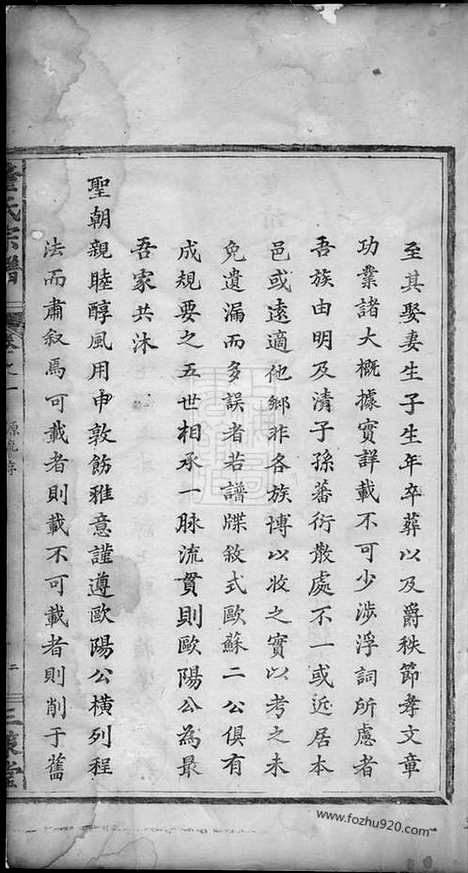 至其娶妻生子生年卒葬以及爵秩節孝文章
功業諸大概據實詳載不可少涉浮詞所慮者
吾族由明及清子孫蕃衍散處不一或近居本
邑或遠適他鄉非各族博以收之實以考之未
免遺漏而多誤者若譜牒敘式歐蘇二公俱有
成規要之五世相承一脉流貫則歐陽公為最
吾家共沐
聖朝親睦醇風用申敦飭雅意謹遵歐陽公橫列程
法而肅叙焉可載者則載不可載者則削于舊
氏宗譜
卷之一
二
三 堂
www.fozhu920.com